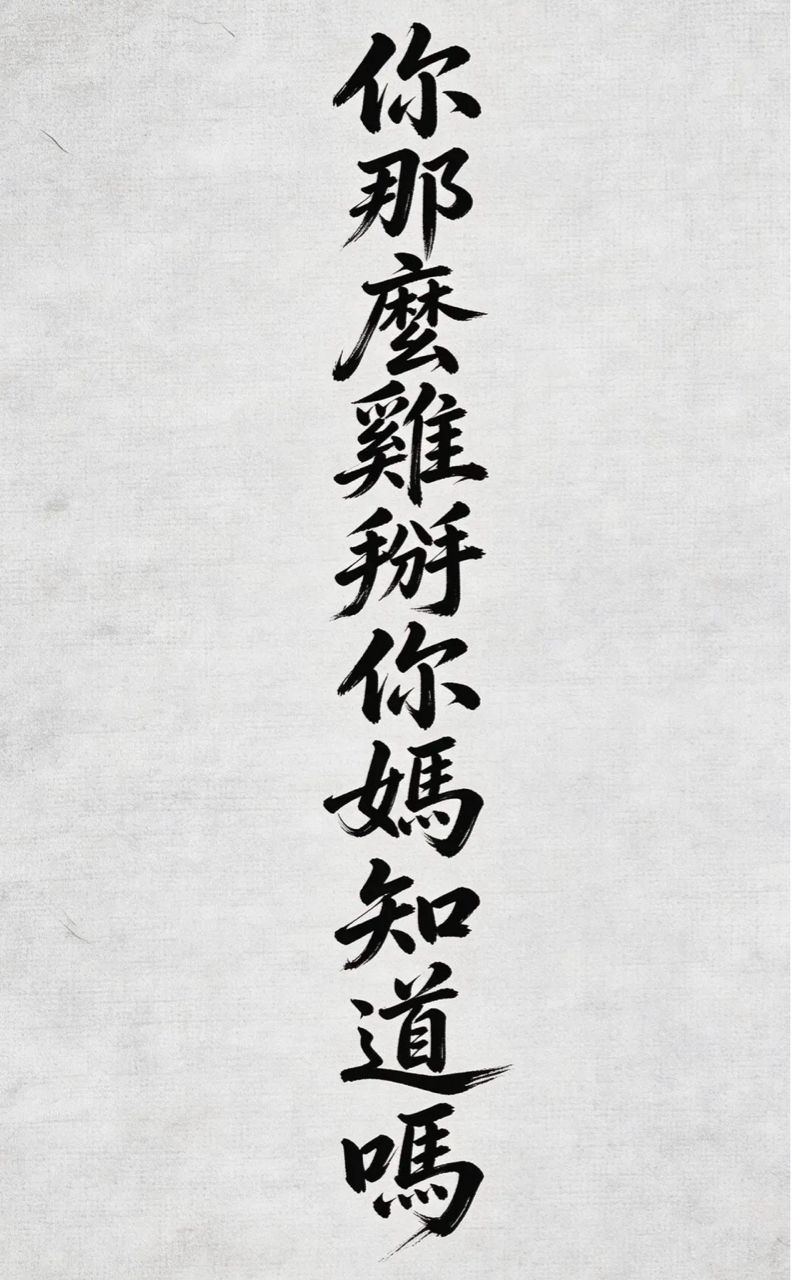 你那麼雞掰你媽知道嗎